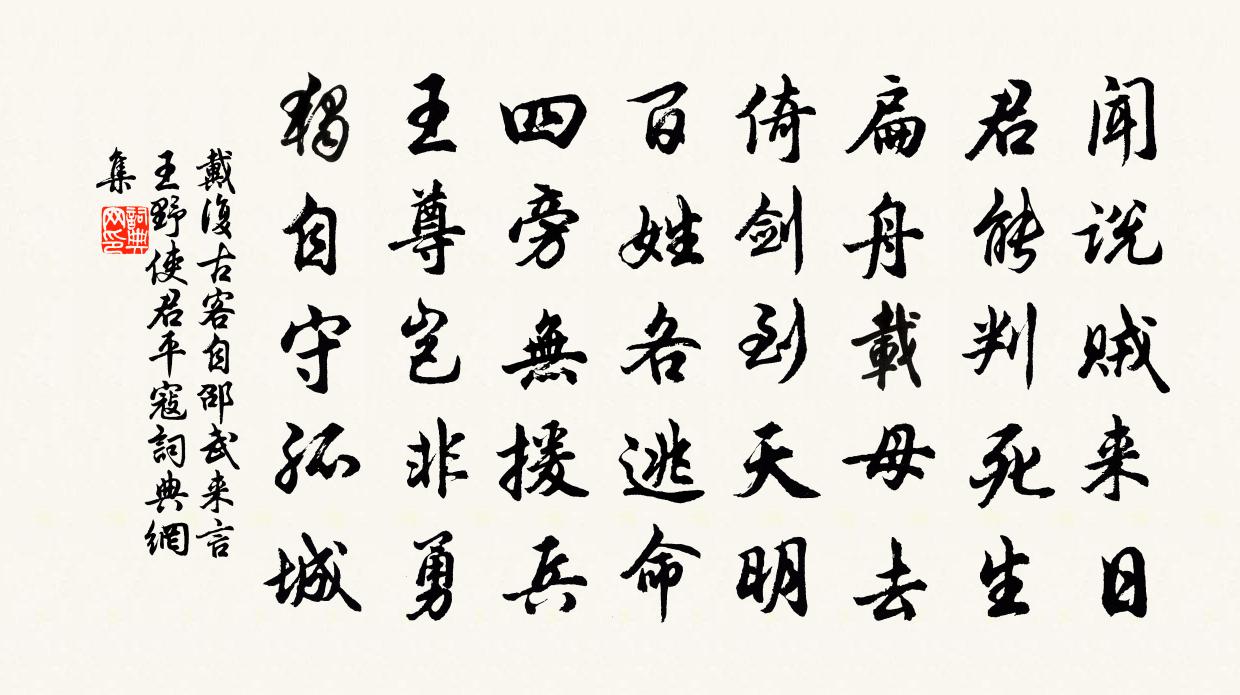 闻说贼来日
君能判死生
扁舟載母去
倚剑到天明
百姓各逃命
四旁無援兵
王尊岂非勇
独自守孤城
戴復古客自邵武来言
王野使君平寇詞典網
集
詞典
网印